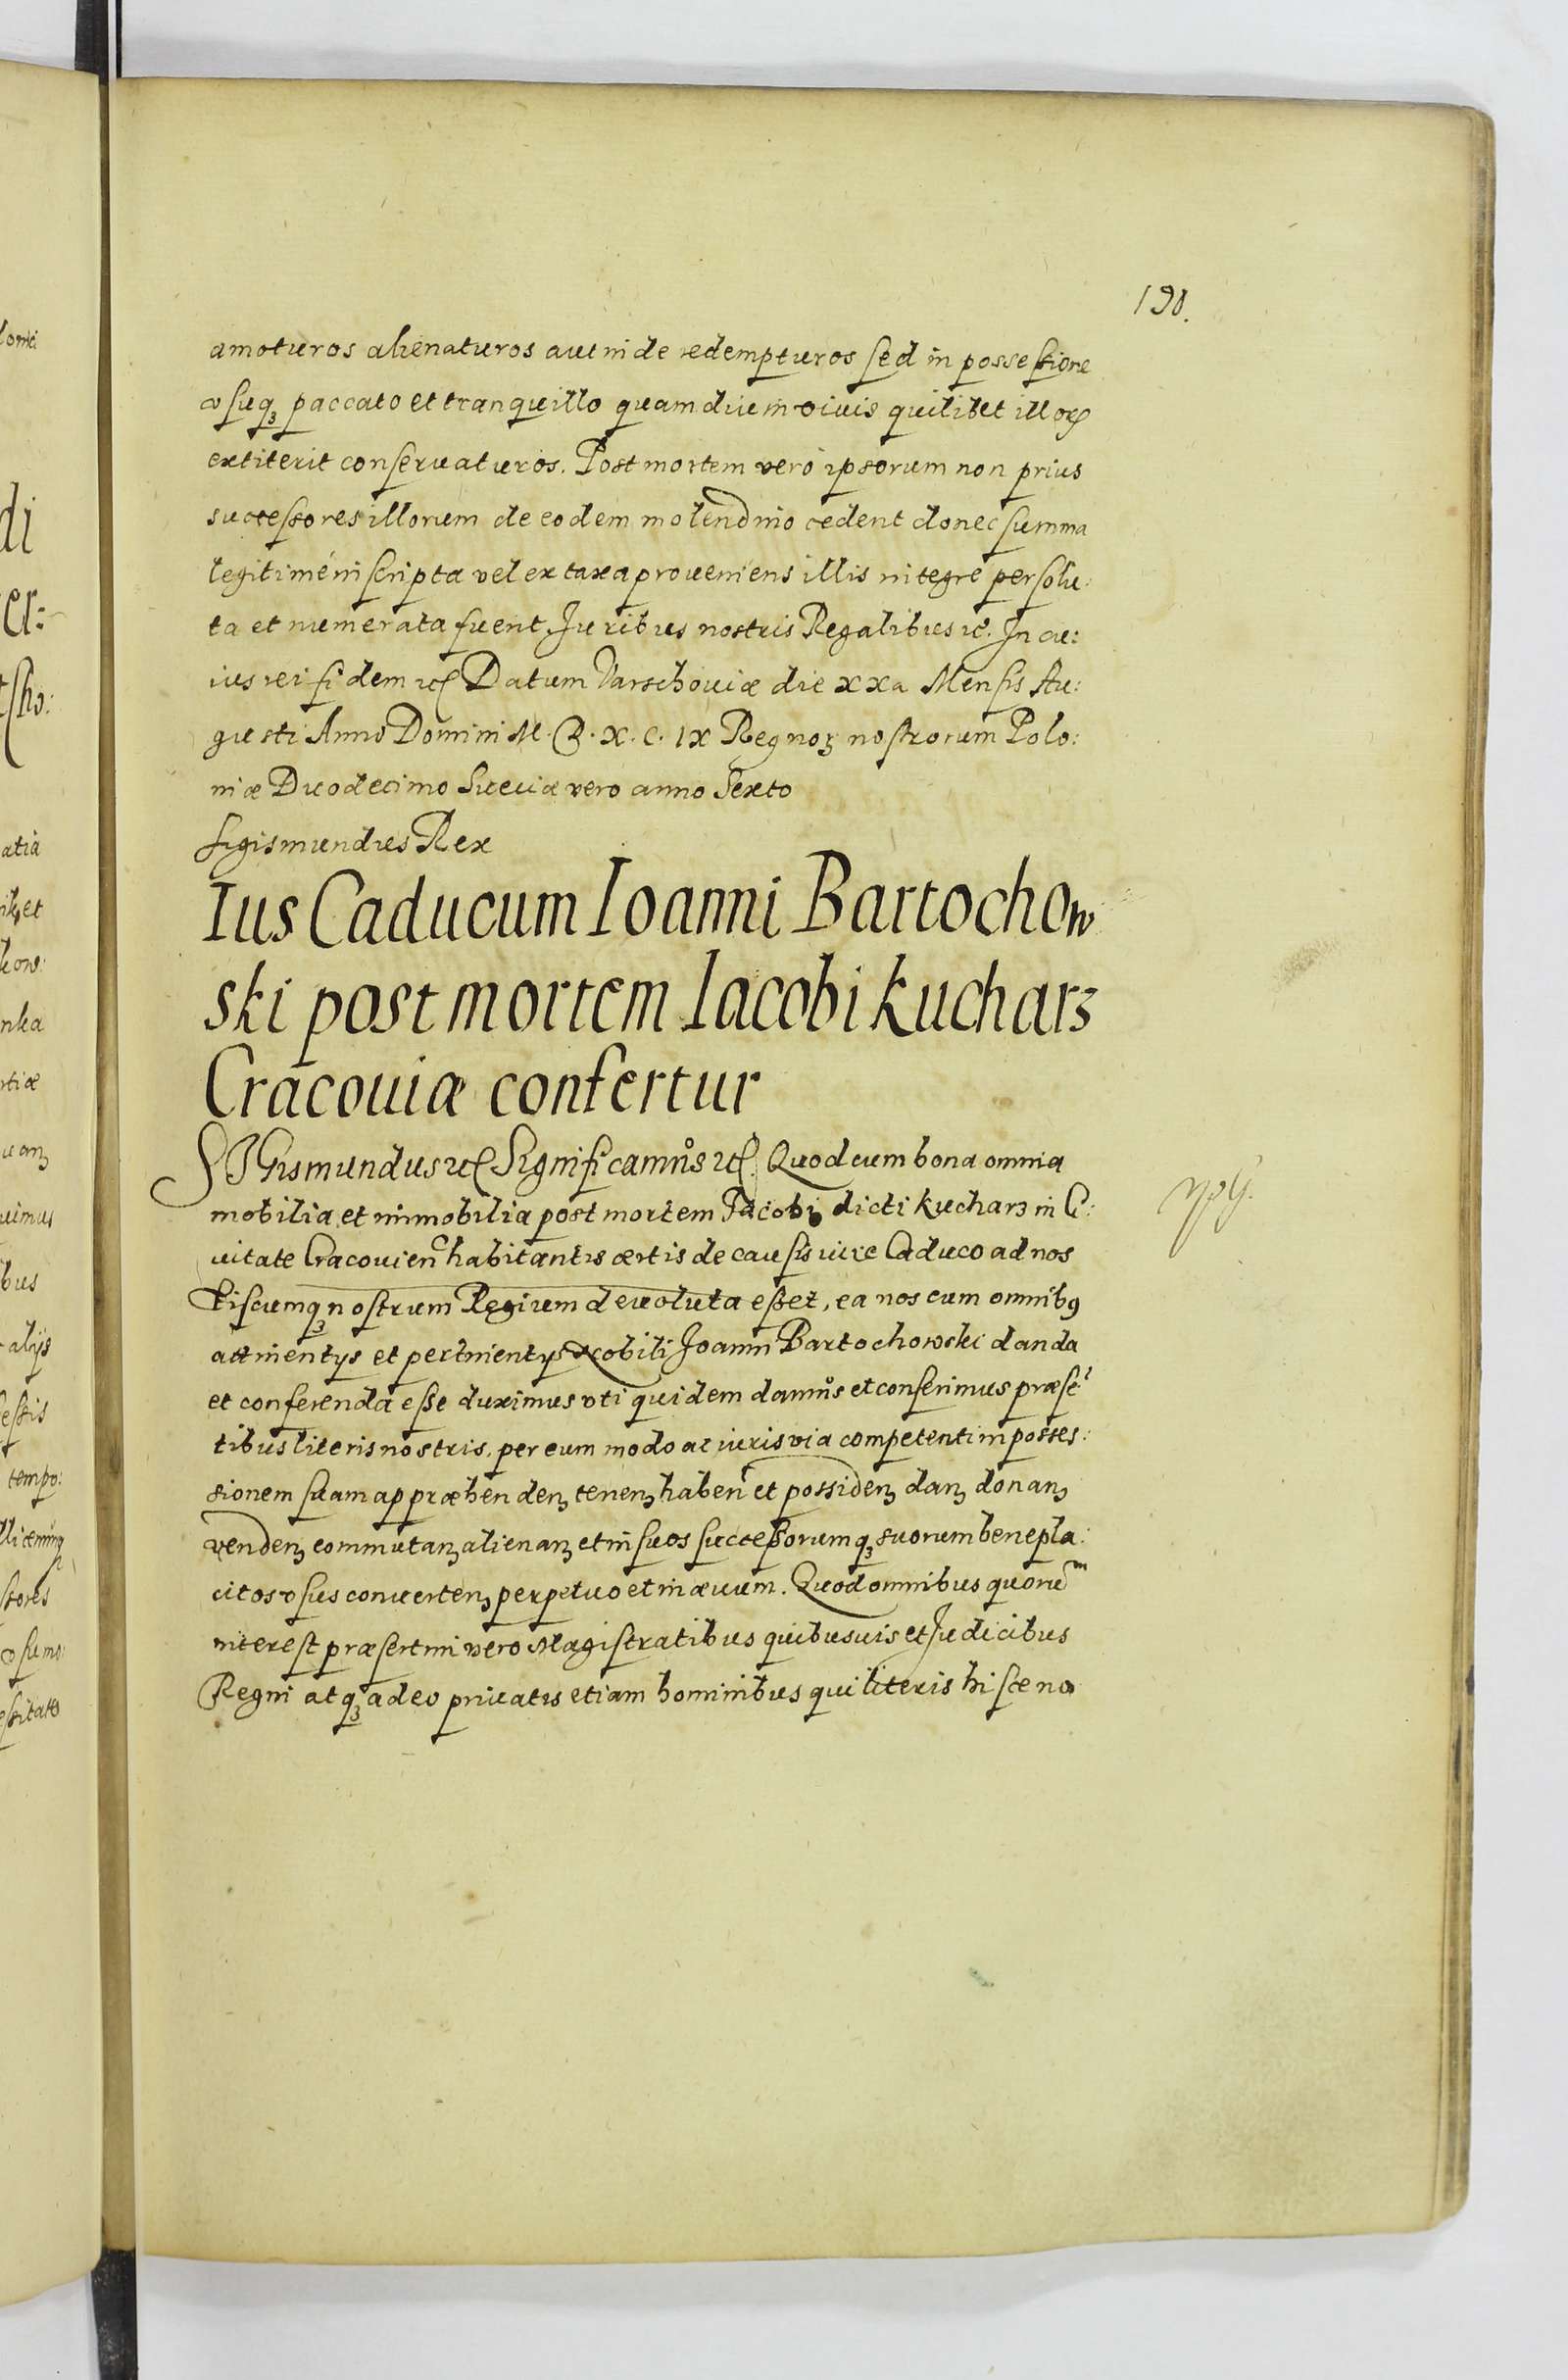 190.
amoturos alienaturos aut inde redempturos sed in possessione
vsuq₃ paccato et tranquillo quamdiu in viuis quilibet illoꝝ
extiterit conseruaturos. Post mortem verò ipsorum non prius
successores illorum de eodem molendino cedent donec summa
legitimé inscripta vel ex taxa proueniens illis integre persolu:
ta et numerata fuent. Juribus nostris Regalibus ꝛc̃. In cu:
ius rei fidem ꝛcꝭ Datum Varschouiæ die xxa Mensis Au:
gusti Anno Domini M. D. X. C. IX Regnoꝝ nostrorum Polo:
niæ Duodecimo Sueciæ vero anno Sexto
Sigismundus Rex
Ius Caducum Ioanni Bartochow
ski post mortem Iacobi kucharz
Cracouiæ confertur
SIGismundus ꝛcꝭ Significamus ꝛcꝭ. Quod cum bona omnia
mobilia et immobilia post mortem Jacobi dicti kucharz in Ci:
uitate Cracouien̄ habitantis certis de causis iure Caduco ad nos
fiscumq₃ nostrum Regium deuoluta essēt, ea nos cum omnibꝯ
attinentys et pertinentys Nobili Joanni Bartochowski danda
et conferenda esse duximus vti quidem damus et conferimus præsē
tibus literis nostris. per eum modo ac iuris via competenti in posses:
sionem suam appræhendenꝫ tenenꝫ haben̄ et possidenꝫ danꝫ donanꝫ
vendenꝫ commutanꝫ alienanꝫ et in suos successorumq₃ suorum benepla:
citos vsus conuertenꝫ perpetuo et in æuum. Quod omnibus quorum
interest præsertim vero Magistratibus quibusuis et Judicibus
Regni atq₃ adeo priuatis etiam hominibus qui literis hisce no